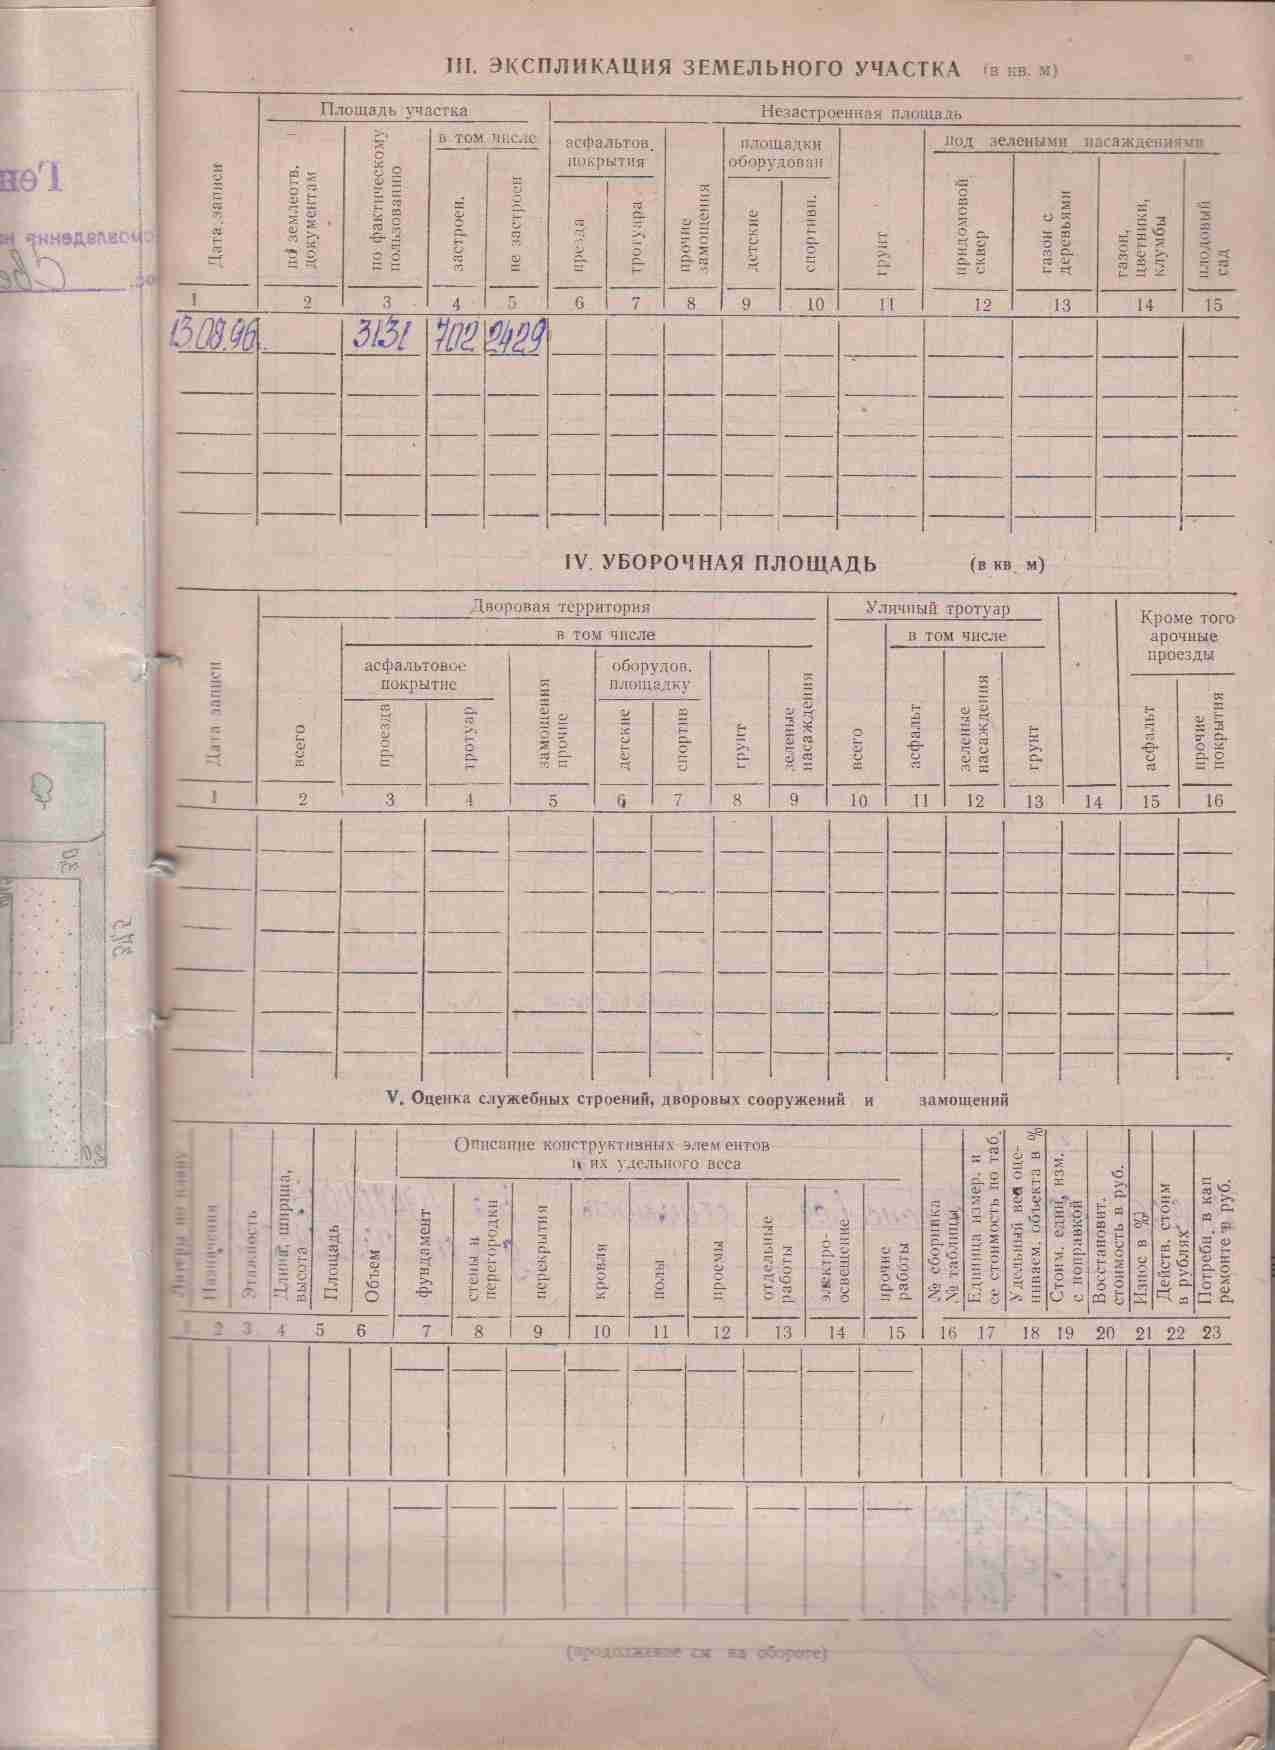 III. ЭКСПЛИКАЦИЯ ЗЕМЕЛЬНОГО УЧАСТКА (в кв. м)
Дата записи
Площадь участка
Незастроенная площадь
по землеотв. документам
по фактическому пользованию
в том числе
застроен.
не застроен
асфальтов. покрытия
проезда
тротуара
прочие замощения
площадки оборудован
детские
спортивн.
грунт
под зелеными насаждениями
придомовой сквер
газон с деревьями
газон, цветники, клумбы
плодовый сад
1 2 3 4 5 6 7 8 9 10 11 12 13 14 15
13.08.96. 3131 702 2429
IV. УБОРОЧНАЯ ПЛОЩАДЬ (в кв. м)
Дата записи
Дворовая территория
Уличный тротуар
Кроме того арочные проезды
всего
в том числе
асфальтовое покрытие
проезда
тротуар
замощения прочие
оборудов. площадку
детские
спортив
грунт
зеленые насаждения
всего
в том числе
асфальт
зеленые насаждения
грунт
асфальт
прочие покрытия
1 2 3 4 5 6 7 8 9 10 11 12 13 14 15 16
V. Оценка служебных строений, дворовых сооружений и замощений
Литеры по плану
Назначения
Этажность
Длина, ширина, высота
Площадь
Объем
Описание конструктивных элементов
и их удельного веса
фундамент
стены и перегородки
перекрытия
кровля
полы
проемы
отдельные работы
электро-освещение
прочие работы
№ сборника № таблицы
Единица измер. и ее стоимость по таб.
Удельный вес оце-ниваем. объекта в %
Стоим. един, изм. с поправкой
Восстановит. стоимость в руб.
Износ в %
Действ. стоим в рублях
Потребн. в кап ремонте в руб.
1 2 3 4 5 6 7 8 9 10 11 12 13 14 15 16 17 18 19 20 21 22 23
(продолжение см на обороте)